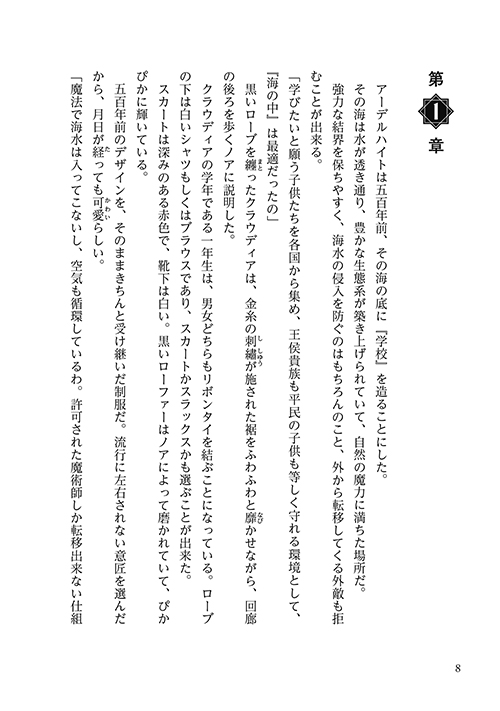 第1章
アーデルハイトは五百年前、その海の底に『学校』を造ることにした。
その海は水が透き通り、豊かな生態系が築き上げられていて、自然の魔力に満ちた場所だ。
強力な結界を保ちやすく、海水の侵入を防ぐのはもちろんのこと、外から転移してくる外敵も拒
むことが出来る。
「学びたいと願う子供たちを各国から集め、王侯貴族も平民の子供も等しく守れる環境として、
『海の中』は最適だったの」
黒いローブを纏ったクラウディアは、金糸の刺繍が施された裾をふわふわと靡かせながら、回廊
の後ろを歩くノアに説明した。
クラウディアの学年である一年生は、男女どちらもリボンタイを結ぶことになっている。ローブ
の下は白いシャツもしくはブラウスであり、スカートかスラックスかも選ぶことが出来た。
スカートは深みのある赤色で、靴下は白い。黒いローファーはノアによって磨かれていて、ぴか
ぴかに輝いている。
五百年前のデザインを、そのままきちんと受け継いだ制服だ。流行に左右されない意匠を選んだ
から、月日が経っても可愛らしい。
「魔法で海水は入ってこないし、空気も循環しているわ。許可された魔術師しか転移出来ない仕組
8